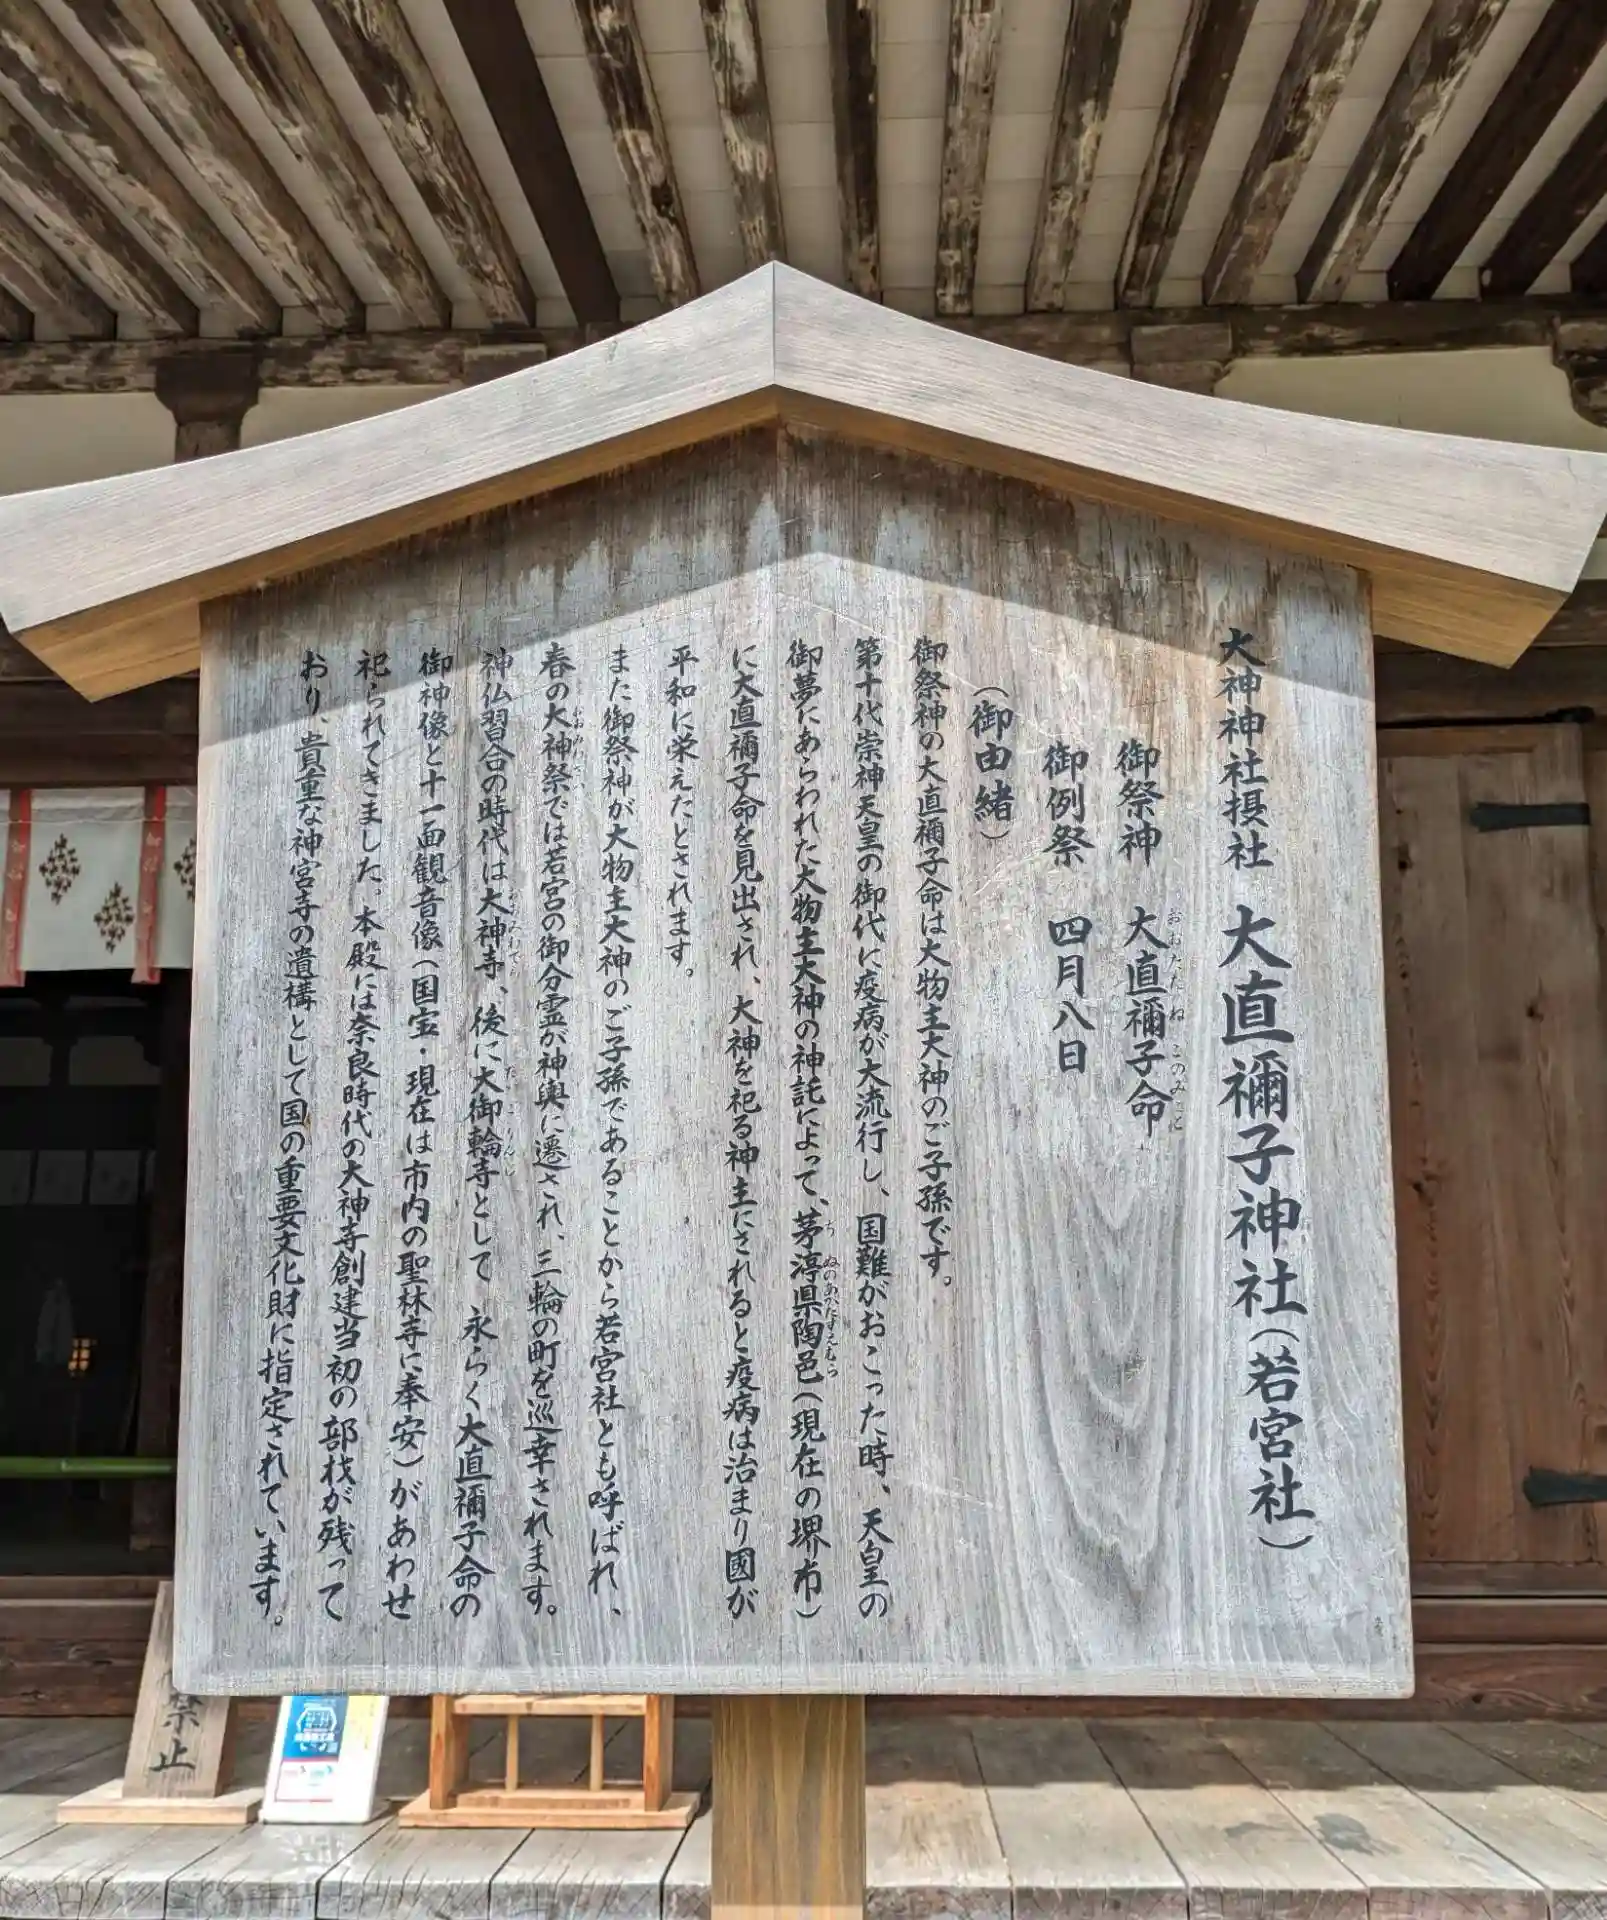 大神神社摂社 大直禰子神社(若宮社)
御祭神 大直禰子命
おおたたねこのみこと
御例祭 四月八日
(御由緒)
御祭神の大直禰子命は大物主大神のご子孫です。
第十代崇神天皇の御代に疫病が大流行し、国難がおこった時、天皇の
御夢にあらわれた大物主大神の神託によって、茅渟県陶邑(現在の堺市)
ちぬのあがたすえむら
に大直禰子命を見出され、大神を祀る神主にされると疫病は治まり國が
平和に栄えたとされます。
また御祭神が大物主大神のご子孫であることから若宮社とも呼ばれ、
春の大神祭では若宮の御分霊が神輿に遷され、三輪の町を巡幸されます。
おおみわさい
神仏習合の時代は大神寺、後に大御輪寺として 永らく大直禰子命の
おおみわでら だいごりんじ
御神像と十一面観音像(国宝・現在は市内の聖林寺に奉安)があわせ
祀られてきました。本殿には奈良時代の大神寺創建当初の部材が残って
おり、貴重な神宮寺の遺構として国の重要文化財に指定されています。
禁止